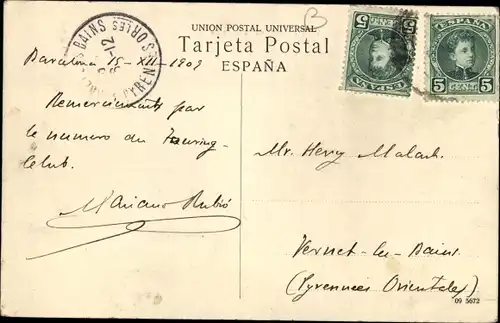 UNION POSTAL UNIVERSAL
Tarjeta Postal
ESPAÑA
Barcelona 15-XII-1909
Remerciments par
le numero du Touring-
Club.
Mariano Rubió
Mr. Henry Malart.
Vernet-les-Bains
(Pyrennées Orientales)
09 5672
ESPAÑA
5 CENT 5
ESPAÑA
5 CENT 5
BAINS
12
PYREN
ORLES
B